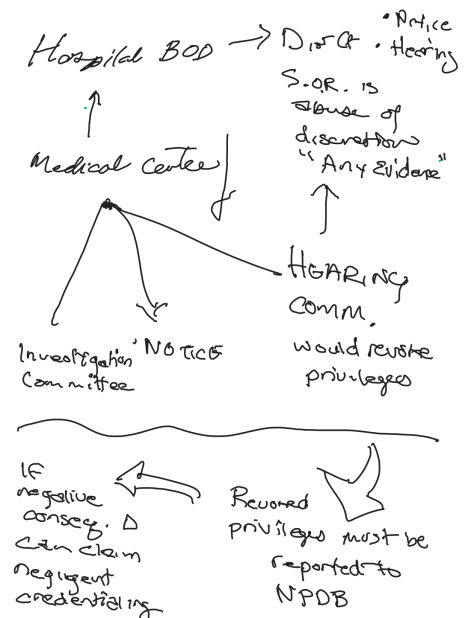 Hospital BOD → Dist Ct • Notice
• Hearing
S.O.R. is
abuse of
discretion
"Any Evidence"
Medical center
HEARING
COMM.
would revoke
privileges
Investigation
Committee
NOTICE
IF
negative
conseq. Δ
can claim
negligent
credentialing
Revoked
privileges must be
reported to
NPDB